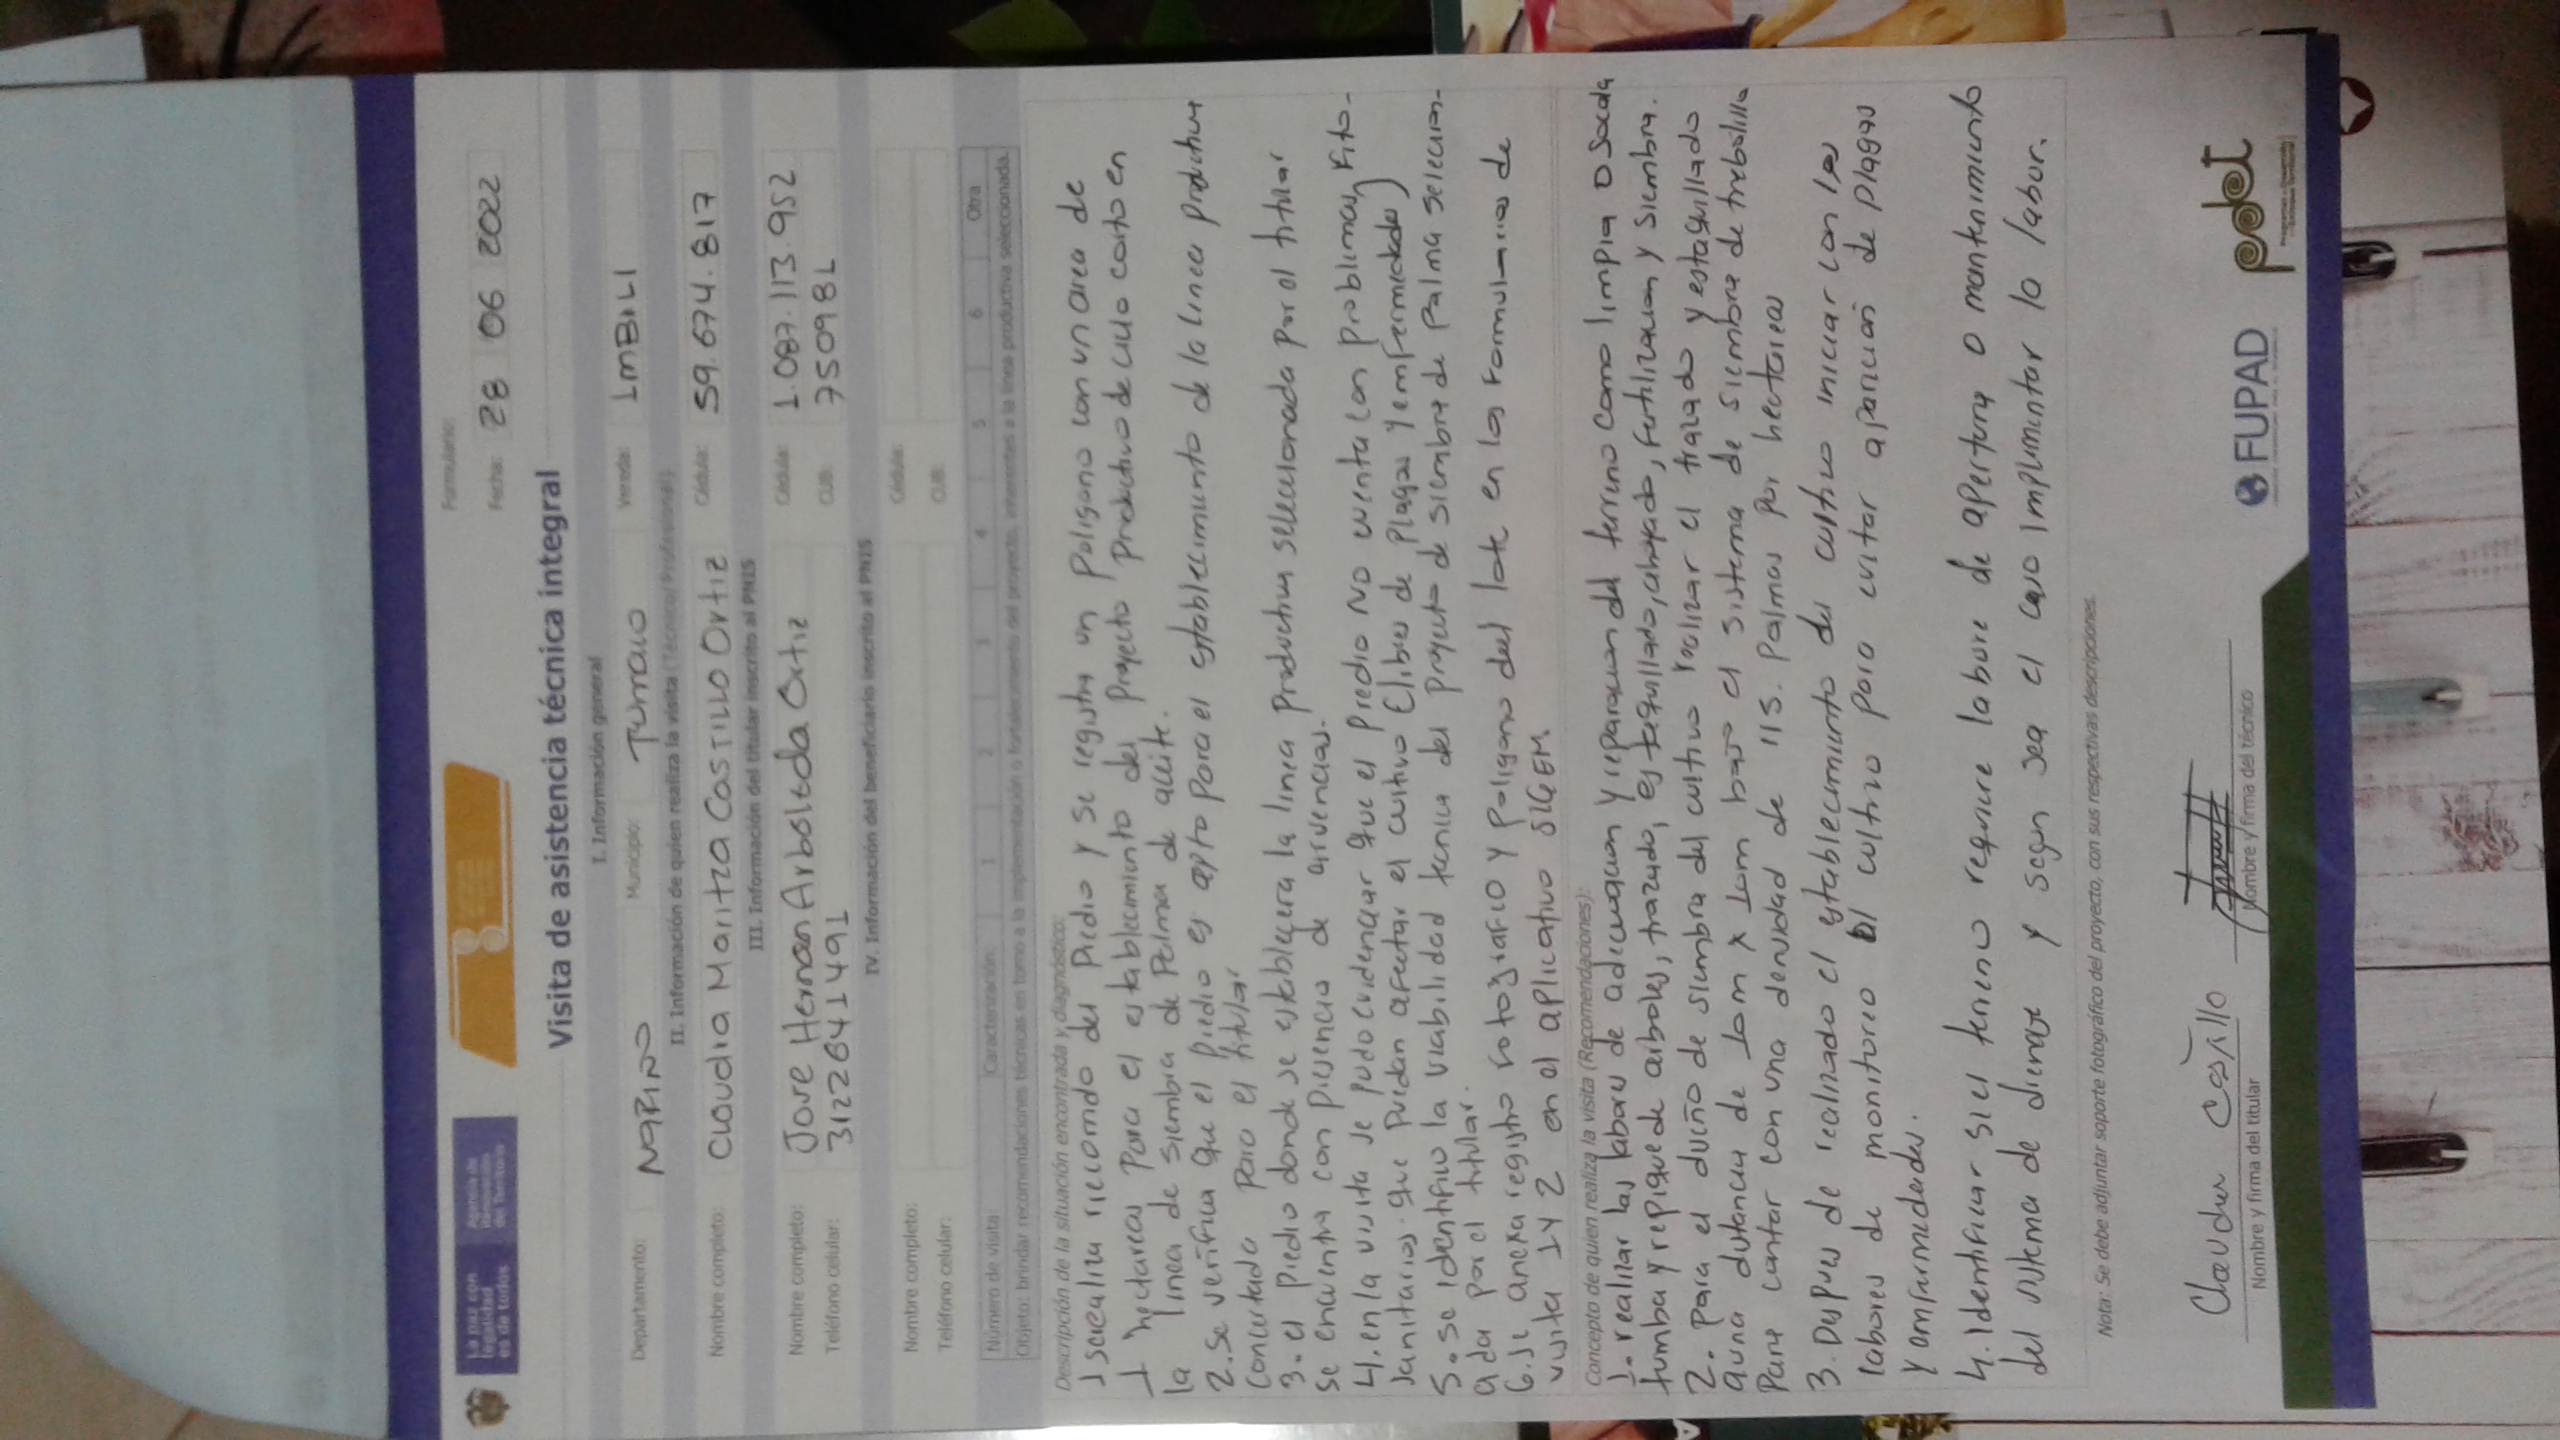 La paz con
legalidad
es de todos
Agencia de
Renovación
del Territorio
Formulario:
Fecha: 28 06 2022
Visita de asistencia técnica integral
I. Información general
Departamento: NARIÑO Municipio: TUMACO Vereda: IMBILI
II. Información de quien realiza la visita (Técnico/Profesional)
Nombre completo: Claudia Maritza CASTILLO Ortiz Cédula: 59.674.817
III. Información del titular inscrito al PNIS
Nombre completo: Jose Hernan Arboleda Ortiz Cédula: 1.087.113.952
Teléfono celular: 3122641491 CUB: 750981
IV. Información del beneficiario inscrito al PNIS
Nombre completo: Cédula:
Teléfono celular: CUB:
Número de visita: Caracterización: 1 2 3 4 5 6 Otra
Objeto: brindar recomendaciones técnicas en torno a la implementación o fortalecimiento del proyecto, inherentes a la línea productiva seleccionada.
Descripción de la situación encontrada y diagnóstico:
1 se realiza recorrido del Predio y se registra un Poligono con un area de
1 hectareas Para el establecimiento del Proyecto Productivo de ciclo corto en
la linea de siembra de Palma de aceite.
2. se verifica que el predio es apto para el establecimiento de la linea productiva
concertada para el titular
3. el predio donde se establecera la linea productiva seleccionada por el titular
se encuentra con presencia de arvencias.
4. en la visita se pudo evidenciar que el predio no cuenta con problemas fito-
sanitarios. que puedan afectar el cultivo (libre de plagas y enfermedades)
5. se identifico la viabilidad tecnica del proyecto de siembra de Palma seleccion-
ada por el titular.
6. se anexa registro fotografico y poligono del lote en los formularios de
visita 1 y 2 en el aplicativo SIGEM.
Concepto de quien realiza la visita (Recomendaciones):
1. realizar las labores de adecuacion y reparacion del terreno como limpia o Socola
tumba y repique de arboles, trazado, estaquillado, ahoyado, fertilizacion y siembra.
2. para el diseño de siembra del cultivo realizar el trazado y estaquillado
a una distancia de 10m x 10m bajo el sistema de siembra de tresbolillo
Para contar con una densidad de 115. Palmas por hectareas
3. Despues de realizado el establecimiento del cultivo iniciar con las
labores de monitoreo al cultivo para evitar aparicion de plagas
y enfermedades.
4. Identificar si el terreno requiere labore de apertura o mantenimiento
del sistema de drenaje y segun sea el caso implementar la labor.
Nota: Se debe adjuntar soporte fotográfico del proyecto, con sus respectivas descripciones.
Claudia Castillo
Nombre y firma del titular
Nombre y firma del técnico
FUPAD
pdet